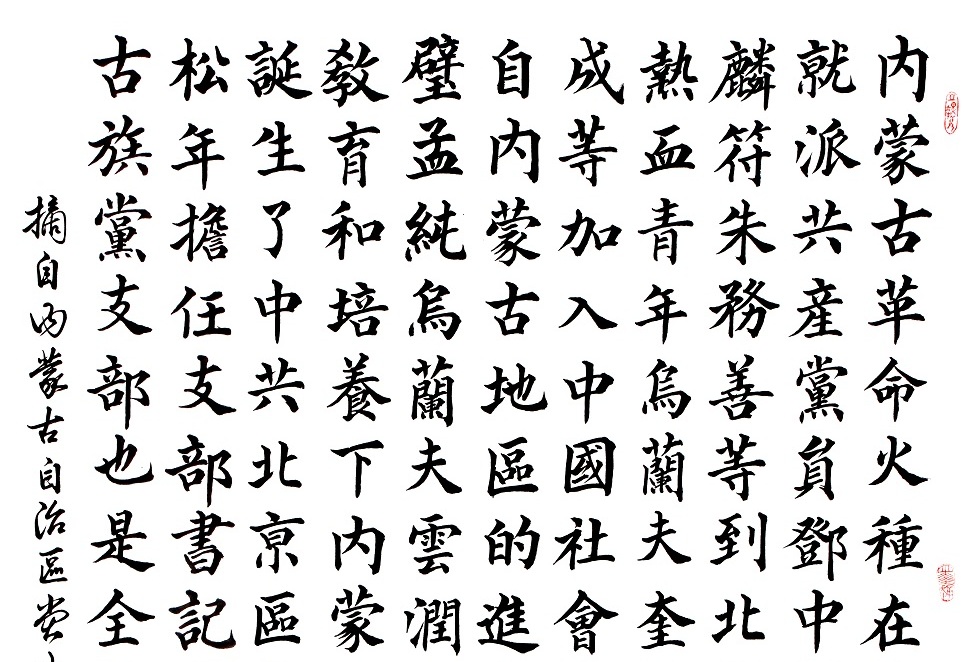 内蒙古革命火種在
就派共産黨員鄧中
麟符朱務善等到北
熱血青年烏蘭夫奎
成等加入中國社會
自内蒙古地區的進
璧孟純烏蘭夫雲潤
教育和培養下内蒙
誕生了中共北京區
松年擔任支部書記
古族黨支部也是全
摘自内蒙古自治區党